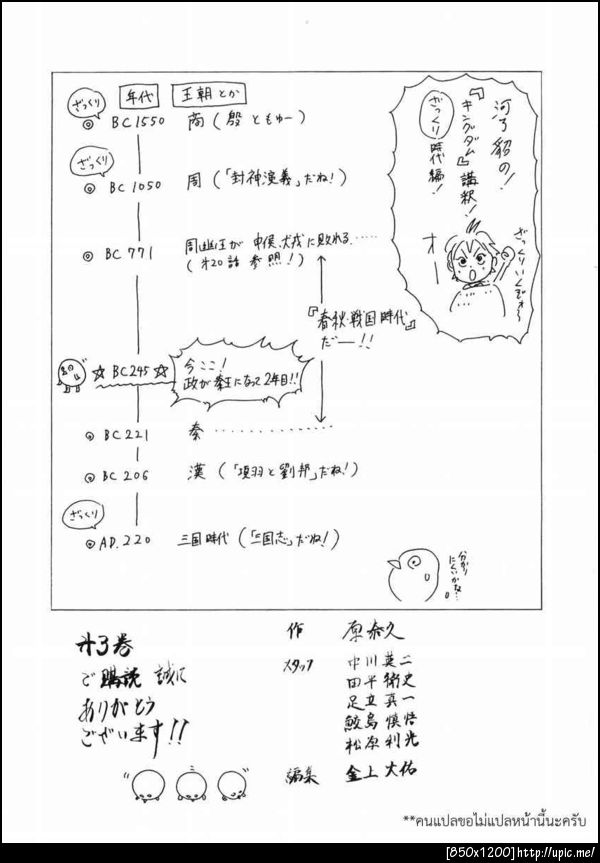 河了貂の!
『キングダム』講釈!
ざっくり 時代編!
ざっくりいくぞォ〜
オー
ざっくり 年代 王朝とか
◎ BC1550 商(殷ともゆー)
ざっくり
◎ BC1050 周(「封神演義」だね!)
◎ BC771 周幽王が申侯、犬戎に敗れる……
(オ20話 参照!)
『春秋・戦国時代』
だ――!!
☆BC245☆ 今ここ!
政が秦王になって2年目!!
◎ BC221 秦…………
◎ BC206 漢(「項羽と劉邦」だね!)
ざっくり
◎ AD.220 三国時代(「三国志」だね!)
分かり
にくいかな…。
オ3巻
ご購読 誠に
ありがとう
ございます!!
作 原泰久
スタッフ 中川英二
田平衛史
足立真一
鮫島慎悟
松原利光
編集 金上大佑
**คนแปลขอไม่แปลหน้านี้นะครับ
[850x1200]http://upic.me/